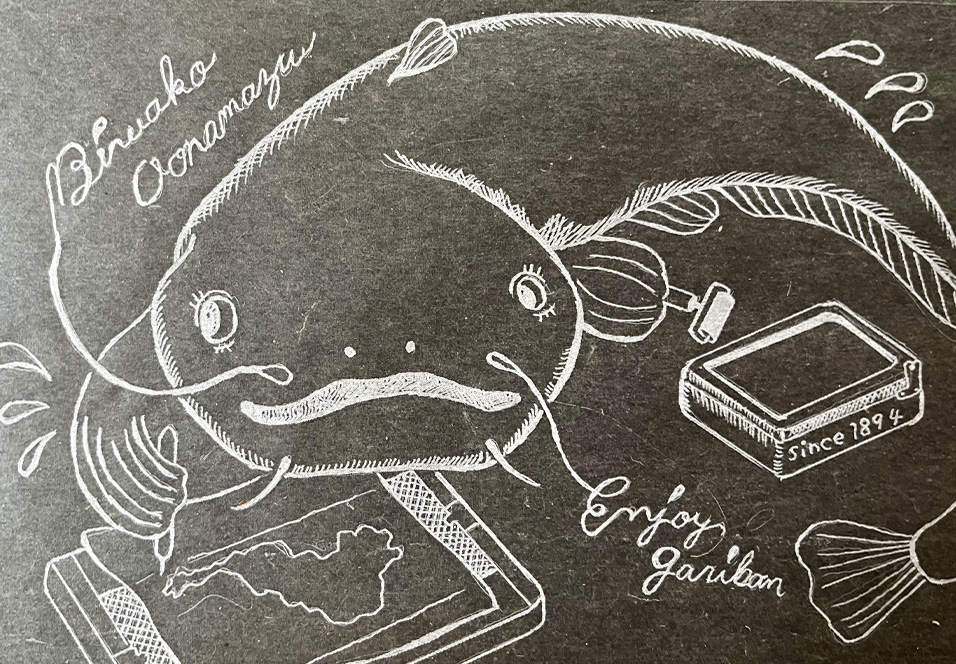 Biwako
Oonamazu
since 1894
Enjoy
gariban